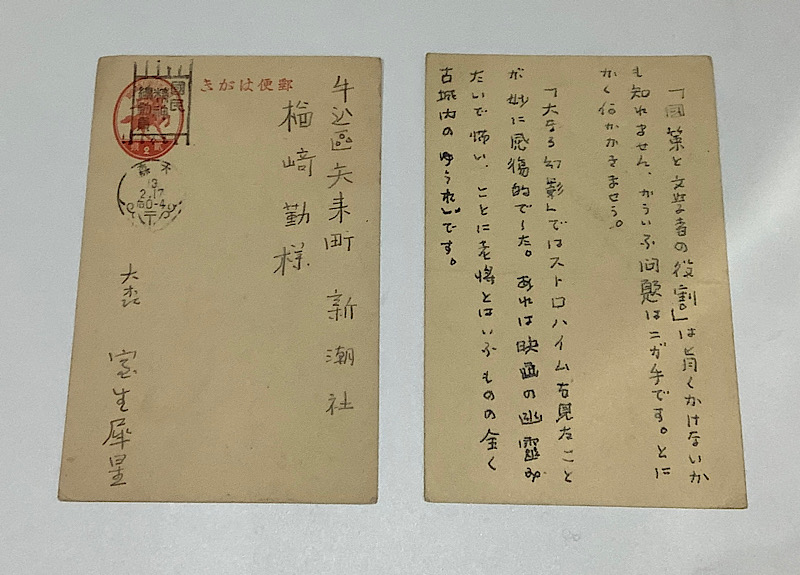 郵便はがき
國民
精神
總動員
13
2.17
牛込區矢来町 新潮社
楢崎勤様
大森 室生犀星
「国策と文学者の役割」は旨くかけないか
も知れません、かういふ問題はニガ手です。とに
かく何かかきませう。
「大なる幻影」ではストロハイムを見たこと
が妙に感傷的でした。あれは映画の幽霊み
たいで怖い、ことに老将とはいふものの全く
古城内のゆうれいです。